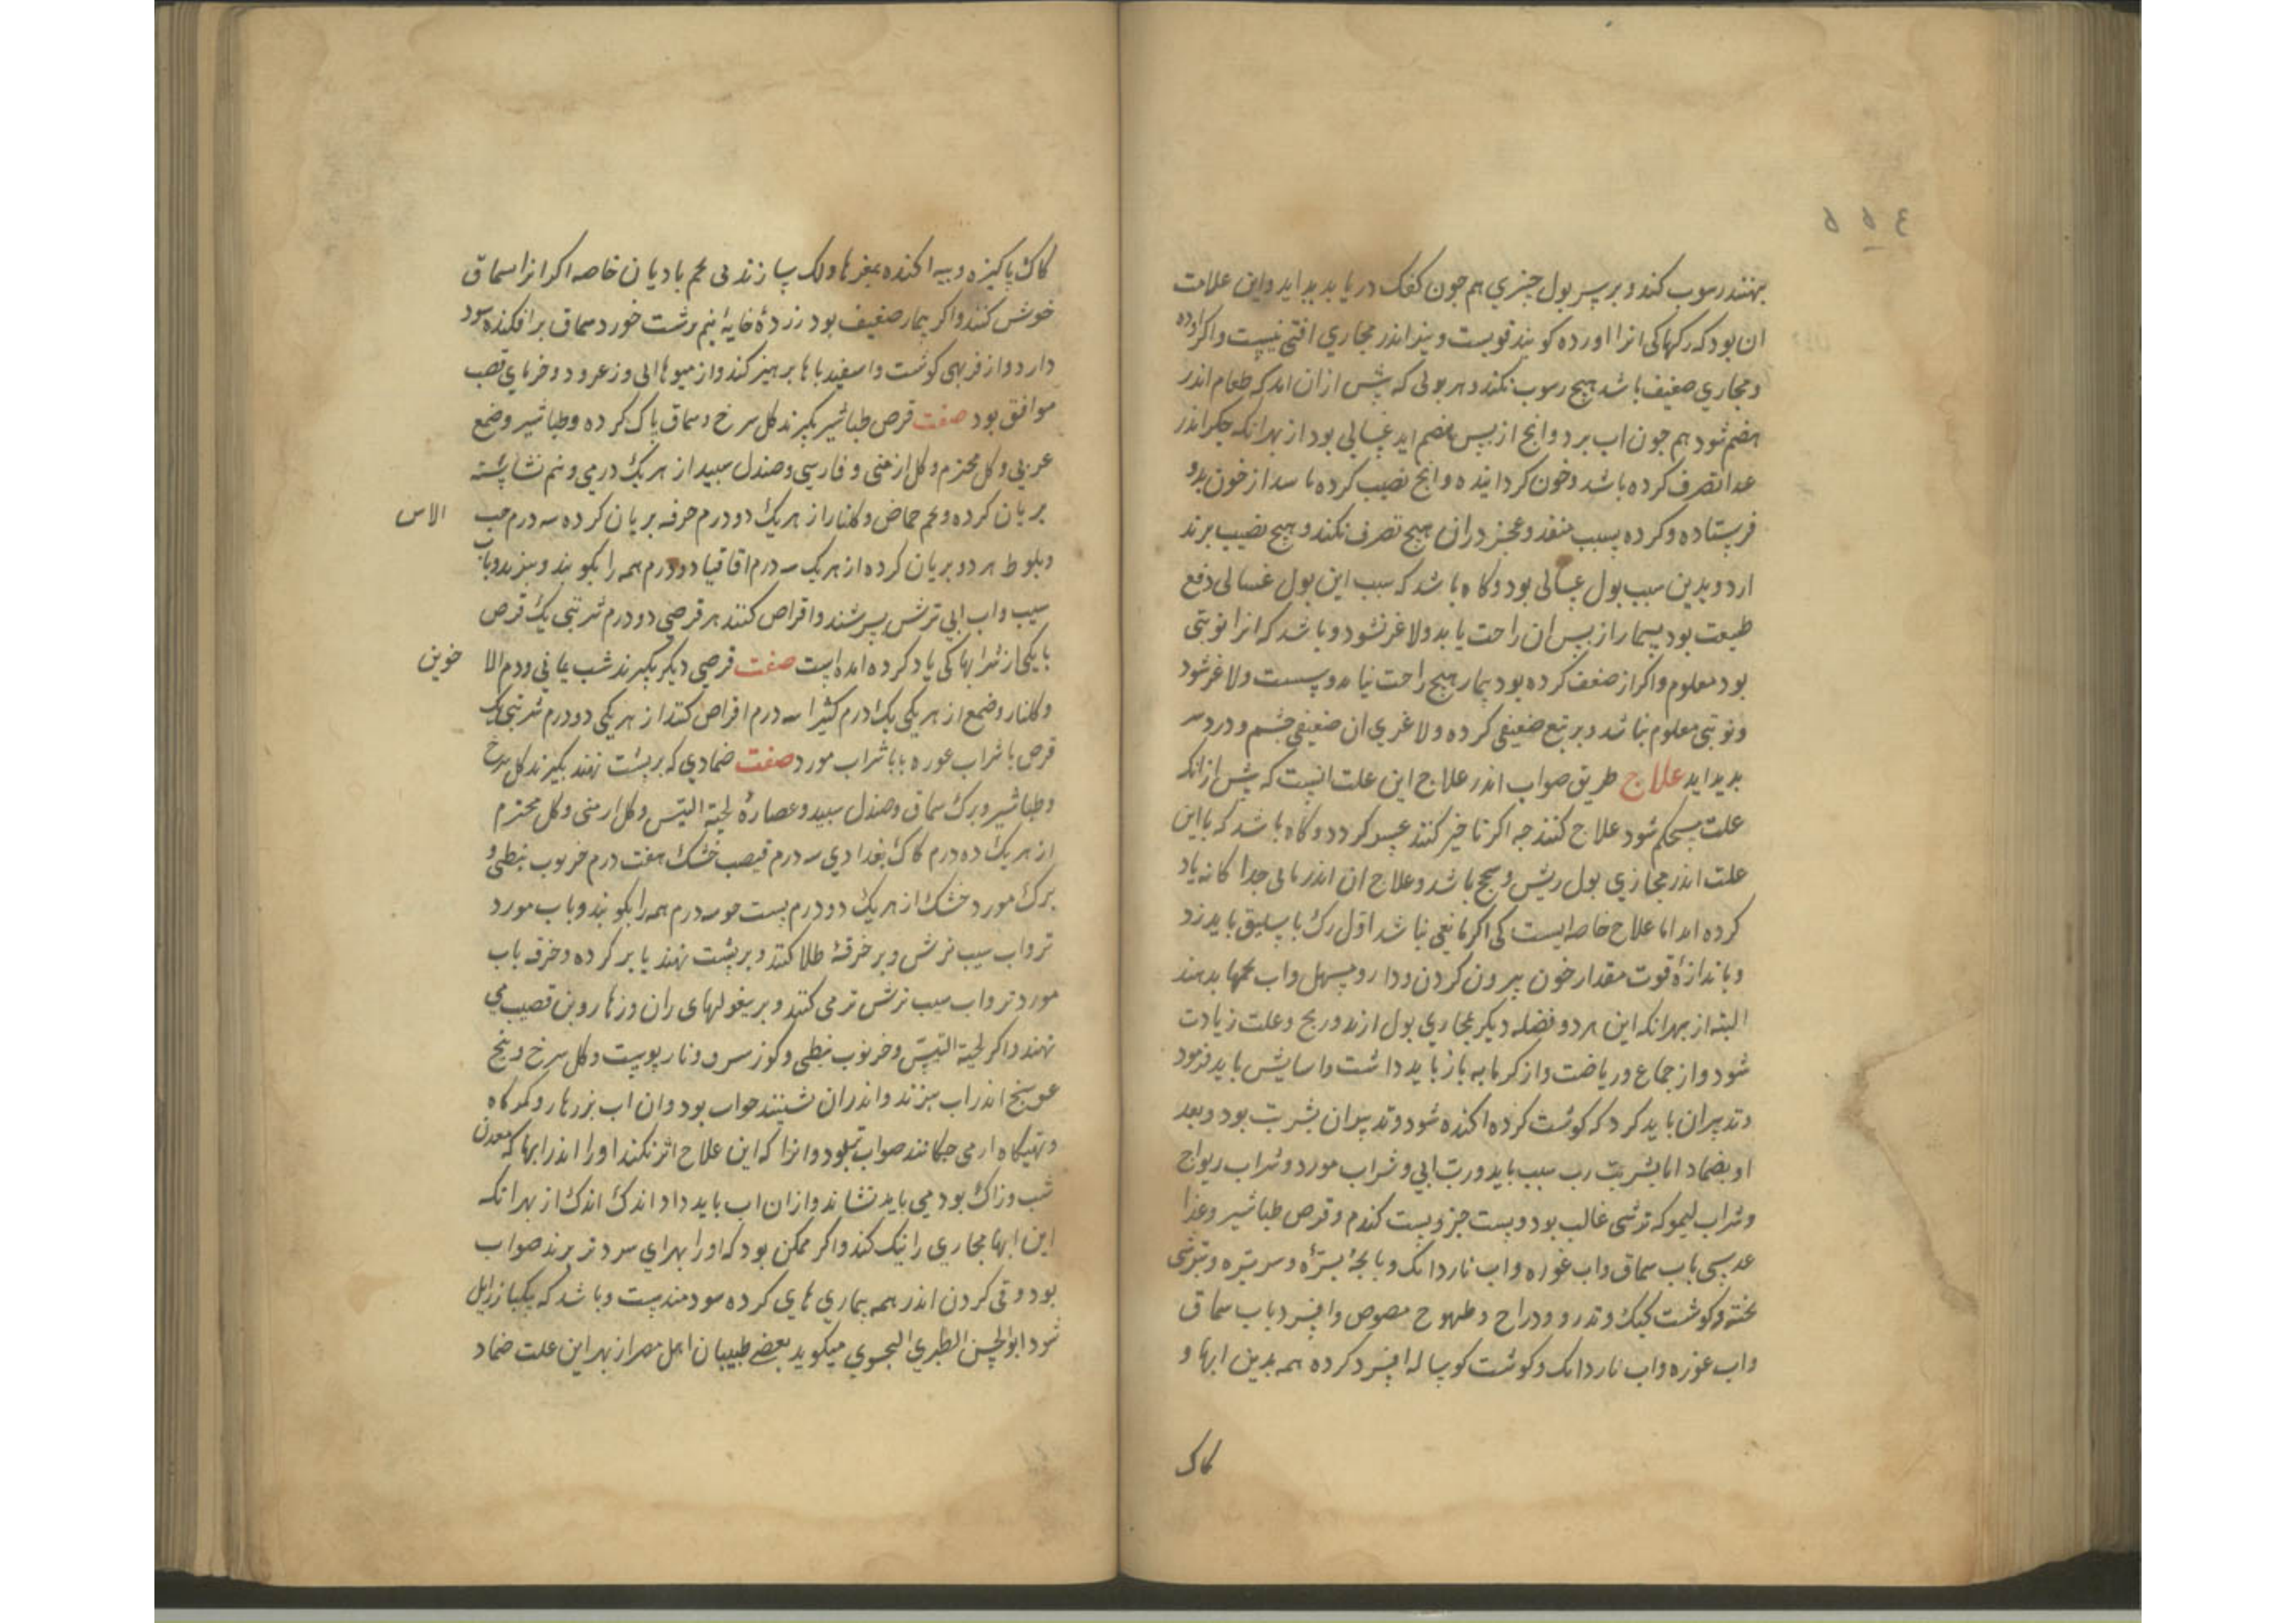 ٥٥٤
بنهند رسوب کند و بر سر بول چیزی هم چون کفک دریا پدید اید واین علامت
ان بود که رکها کی انرا اورده کویند قویست و نیز اندر مجاری افتی نیست واکر اورده
ومجاری ضعیف باشد هیچ رسوب نکند و هر بولی که پش ازان اید که طعام اندر
هضم شود هم چون اب بود وانچ از پس هضم اید غسالی بود از بهر انکه جکر اندر
غذا تصرف کرده باشد وخون کردانیده وانچ نصیب کرده باشد از خون بدو
فرستاده وکرده بسبب منفذ وعجز دران هیچ تصرف نکند و هیچ نصیب برند
ارد وبدین سبب بول غسالی بود وکاه باشد که سبب این بول غسالی دفع
طبیعت بود بیمار از پس ان راحت یابد ولاغر نشود وباشد که انرا نوبتی
بود معلوم واکر از ضعف کرده بود بیمار هیچ راحت نیابد وسست ولاغر شود
ونوبتی معلوم نباشد وبر تبع ضعیفی کرده ولاغری ان ضعیفی چشم و درد سر
پدید اید علاج طریق صواب اندر علاج این علت انست که پش ازانک
علت مستحکم شود علاج کنند چه اکر تاخیر کنند عسر کردد وکاه باشد که با این
علت اندر مجاری بول ریش وسحج باشد وعلاج ان اندر بابی جدا کانه یاد
کرده اید اما علاج خاصه ایست کی اکر مانعی نباشد اول رک باسلیق باید زد
وباندازهٔ قوت مقدار خون بیرون کردن ودارو مسهل واب تخمها بدهند
البته از بهر انکه این هر دو فضله دیکر بمجاری بول ارند وریح وعلت زیادت
شود واز جماع وریاضت واز کرمابه باز باید داشت واسایش باید فرمود
وتدبیران باید کرد که کوشت کرده اکنده شود وتدبیران بشربت بود وبعد
او بضماد اما بشربت رب سیب باید ورب ابی وشراب مورد وشراب ریواج
وشراب لیمو که ترشی غالب بود وپست جو وپست کندم وقرص طباشیر وغذا
عدسی باب سماق واب غوره واب ناردانک وپاچهٔ بزه وسر بزه وبترشی
پخته وکوشت کبک وتدرو ودراج وطیهوج مصوص وافسرد باب سماق
واب غوره واب ناردانک وکوشت کوساله افسرد کرده همه بدین ابها و
کاک
کاک پاکیزه وپیه اکنده بمغزها ولک سازند بی تخم بادیان خاصه اکر انرا سماق
خوش کنند واکر بیمار ضعیف بود زردهٔ خایه نیم برشت خورد سماق بر افکنده سود
دارد واز فربهی کوشت واسفیدباها پرهیز کند واز میوها ابی وزعرور وخرمای قصب
موافق بود صفت قرص طباشیر بکیرند کل سرخ وسماق پاک کرده وطباشیر وصمغ
عربی وکل مختوم وکل ارمنی و فارسی وصندل سپید از هر یک درمی ونیم نشاسته
بریان کرده وتخم حماض وکلنار از هر یک دو درم خرفه بریان کرده سه درم حب
الاس
وبلوط هر دو بریان کرده از هر یک سه درم اقاقیا دو درم همه را بکوبند وبپزند وباب
سیب واب ابی ترش بسرشند واقراص کنند هر قرصی دو درم شربتی یک قرص
با یکی از شرابها کی یاد کرده امده است صفت قرصی دیکر بکیرند شب یمانی ودم الا
خوین
وکلنار وصمغ از هر یکی یک درم کثیرا سه درم اقراص کنند از هر یکی دو درم شربتی یک
قرص با شراب غوره یا با شراب مورد صفت ضمادی که بر پشت نهند بکیرند کل سرخ
وطباشیر وبرک سماق وصندل سپید وعصارهٔ لحیة التیس وکل ارمنی وکل مختوم
از هر یک ده درم کاک بغدادی سه درم قصب خشک هفت درم خرنوب نبطی و
برک مورد خشک از هر یک دو درم پست جو سه درم همه را بکوبند وباب مورد
تر واب سیب ترش وبر خرقهٔ طلا کنند وبر پشت نهند یا بر کرده وخرقه باب
مورد تر واب سیب ترش تر می کنند وبر بیغولهای ران وزهار وبن قضیب می
نهند واکر لحیة التیس وخرنوب نبطی وکوز سرو ونار پوست وکل سرخ وبیخ
عوسج اندر اب بپزند واندران نشینند صواب بود وان اب بر زهار وکمرکاه
وتهیکاه ار می چکانند صواب بود وانرا که این علاج اثر نکند اورا اندر ابها که معدن
شب وزاک بود می باید نشاند وازان اب باید داد اندک اندک از بهر انکه
این ابها مجاری را نیک کند واکر ممکن بود که اورا بهرای سردتر برند صواب
بود وقی کردن اندر همه بیماری های کرده سودمند است وباشد که یکبار زایل
شود ابوالحسن الطبری السجوی میکوید بعضی طبیبان اهل مصر از بهر این علت ضماد